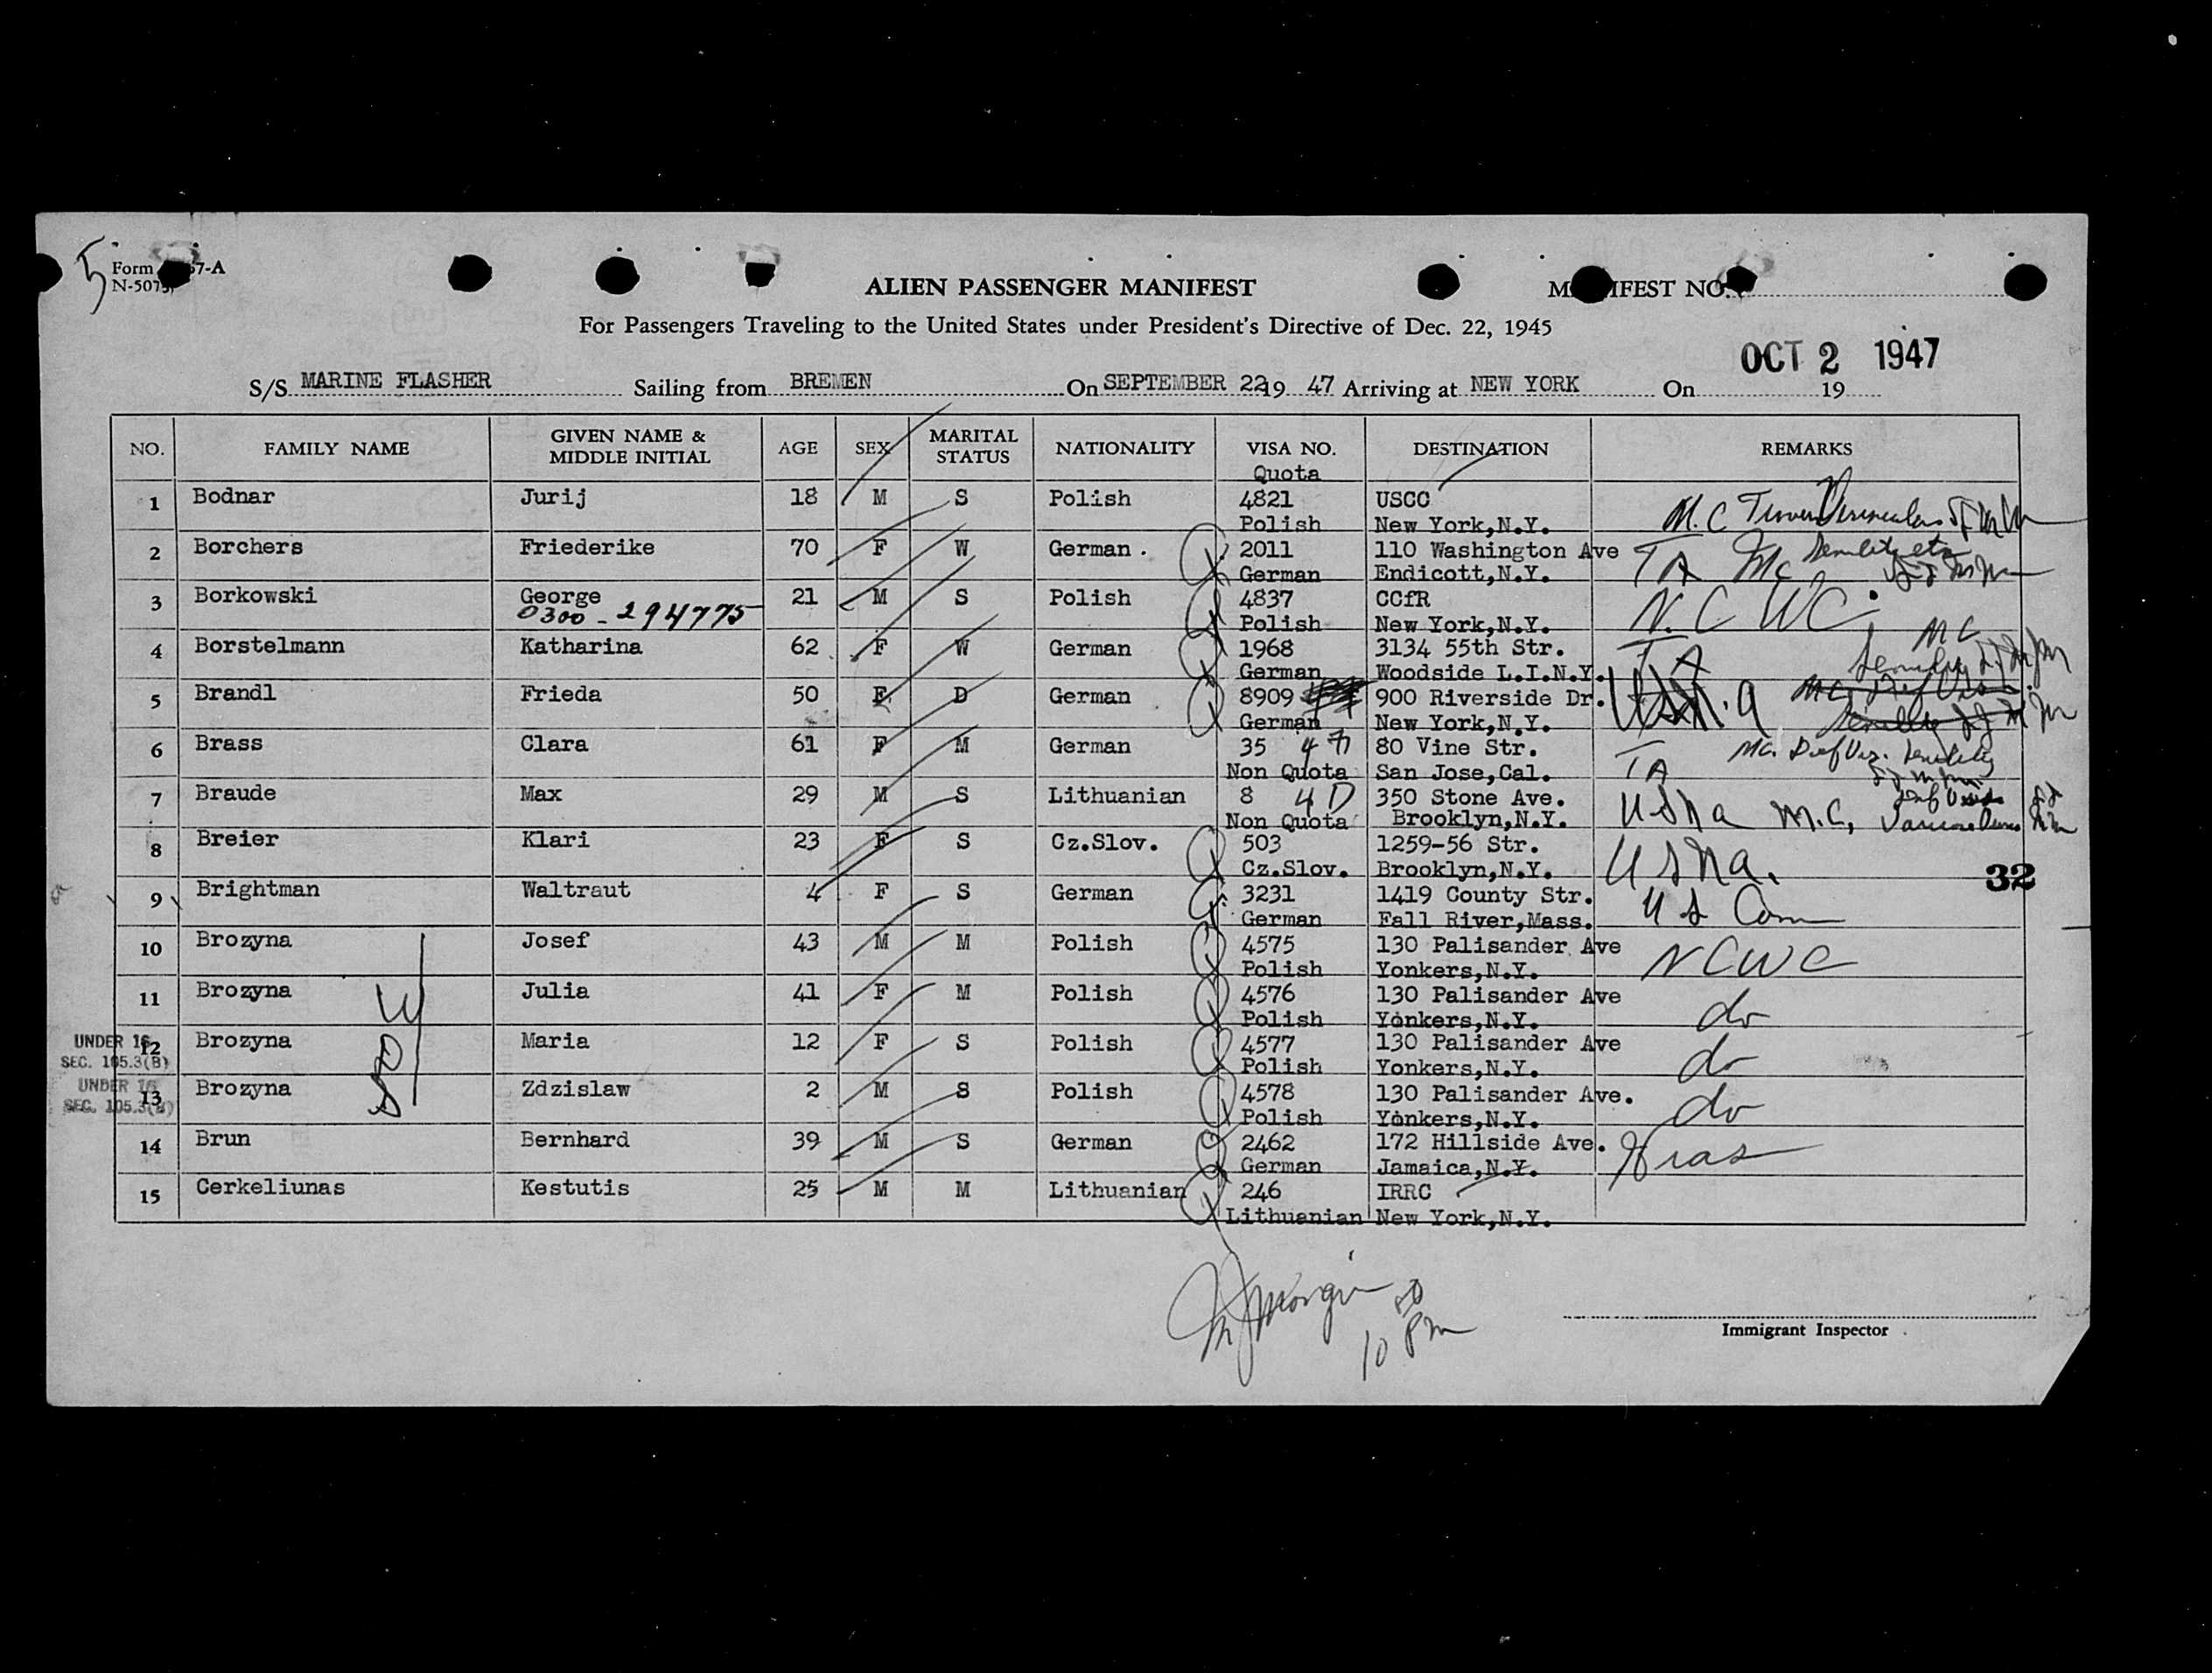 5
Form 57-A
N-5075
ALIEN PASSENGER MANIFEST
MANIFEST NO.
For Passengers Traveling to the United States under President's Directive of Dec. 22, 1945
OCT 2 1947
S/S MARINE FLASHER Sailing from BREMEN On SEPTEMBER 22 19 47 Arriving at NEW YORK On 19
NO. FAMILY NAME GIVEN NAME & MIDDLE INITIAL AGE SEX MARITAL STATUS NATIONALITY VISA NO. DESTINATION REMARKS
Quota
1 Bodnar Jurij 18 M S Polish 4821 USCC
Polish New York,N.Y. M.C.
2 Borchers Friederike 70 F W German . 2011 110 Washington Ave TA Mc Senility etc
German Endicott,N.Y.
3 Borkowski George 21 M S Polish 4837 CCfR N.C.W.C.
0300-294775 Polish New York,N.Y.
4 Borstelmann Katharina 62 F W German 1968 3134 55th Str. TA MC
German Woodside L.I.N.Y. Senility
5 Brandl Frieda 50 F D German 8909 900 Riverside Dr. USNA
German New York,N.Y.
6 Brass Clara 61 F M German 35 80 Vine Str. TA Mc. Def Vis. Senility
Non Quota San Jose,Cal.
7 Braude Max 29 M S Lithuanian 8 4D 350 Stone Ave. USNA M.C,
Non Quota Brooklyn,N.Y.
8 Breier Klari 23 F S Cz.Slov. 503 1259-56 Str. USNA.
Cz.Slov. Brooklyn,N.Y. 32
9 Brightman Waltraut 4 F S German 3231 1419 County Str. US Com
German Fall River,Mass.
10 Brozyna Josef 43 M M Polish 4575 130 Palisander Ave NCWC
Polish Yonkers,N.Y.
11 Brozyna Julia 41 F M Polish 4576 130 Palisander Ave do
Polish Yonkers,N.Y.
UNDER 16
SEC. 105.3(B)
12 Brozyna Maria 12 F S Polish 4577 130 Palisander Ave do
Polish Yonkers,N.Y.
UNDER 16
SEC. 105.3(B)
13 Brozyna Zdzislaw 2 M S Polish 4578 130 Palisander Ave. do
Polish Yonkers,N.Y.
14 Brun Bernhard 39 M S German 2462 172 Hillside Ave. Hias
German Jamaica,N.Y.
15 Cerkeliunas Kestutis 25 M M Lithuanian 246 IRRC
Lithuanian New York,N.Y.
10 PM
Immigrant Inspector